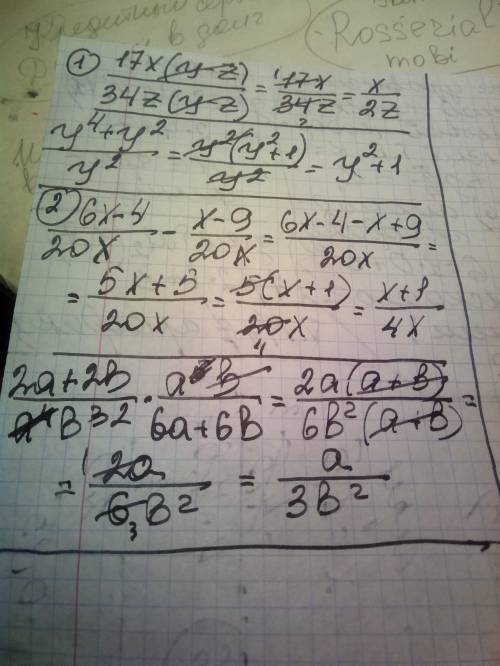 Кредитный
в долг
Rosserial
mobi
① 17x(y-z)/34z(y-z) = 17x/34z = x/2z
y⁴+y²/y² = y²(y²+1)/y² = y²+1
② 6x-4/20x - x-9/20x = 6x-4-x+9/20x =
= 5x+5/20x = 5(x+1)/20x = x+1/4x
2a+2b/b³ · b/6a+6b = 2a(a+b)/6b²(a+b) =
= 2a/6b² = a/3b²